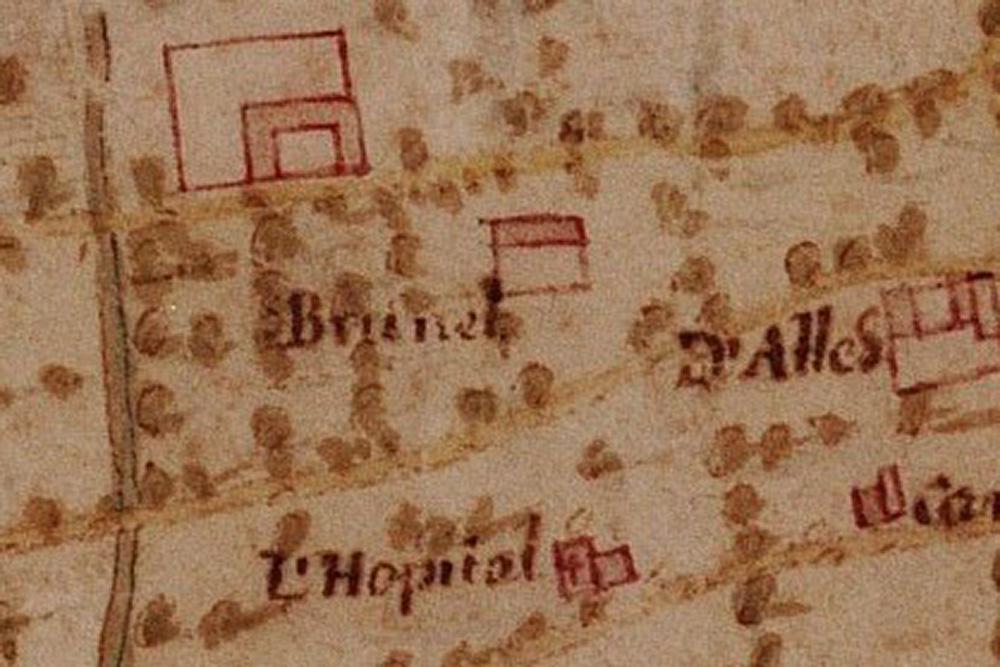 Brunel
D'Alles
L'Hopital